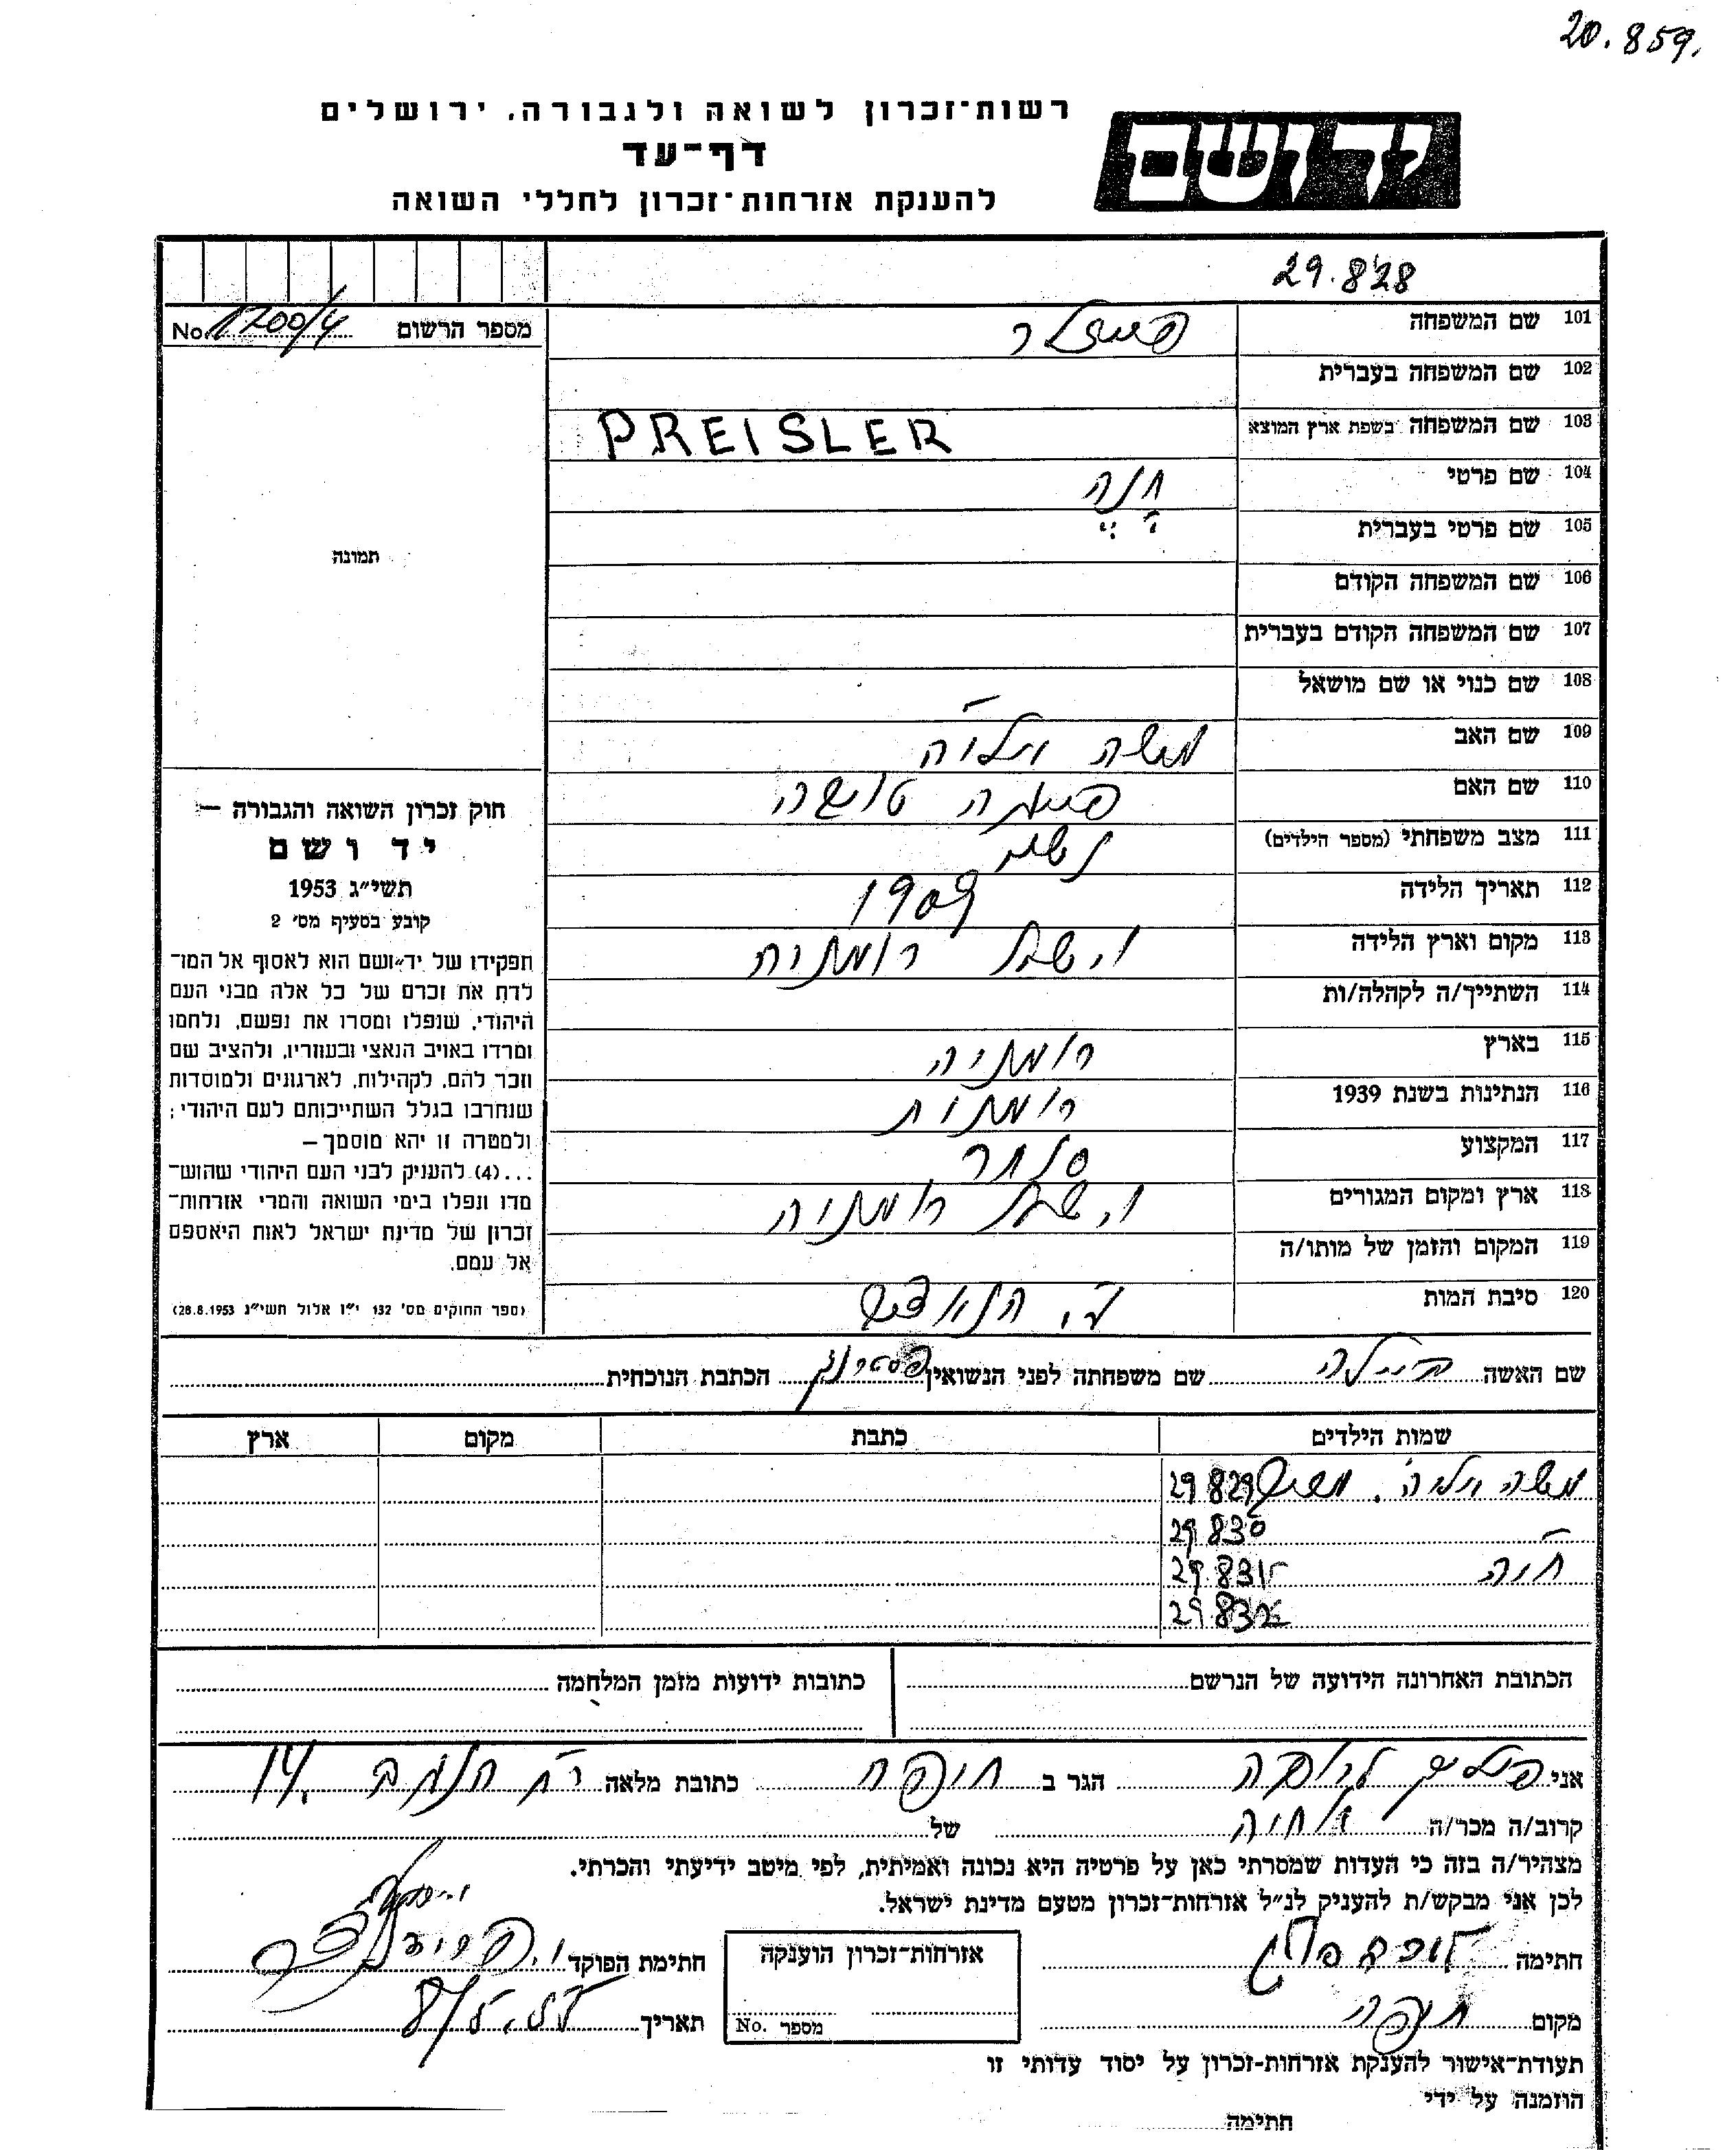 20.859.
רשות־זכרון לשואה ולגבורה, ירושלים
יד ושם
דף־עד
להענקת אזרחות־זכרון לחללי השואה
29.828
101 שם המשפחה
מספר הרשום No.
102 שם המשפחה בעברית
103 שם המשפחה בשפת ארץ המוצא PREISLER
104 שם פרטי חנה
105 שם פרטי בעברית
106 שם המשפחה הקודם
107 שם המשפחה הקודם בעברית
108 שם כנוי או שם מושאל
109 שם האב משה
110 שם האם
111 מצב משפחתי (מספר הילדים) נשוי
112 תאריך הלידה 1909
113 מקום וארץ הלידה
114 השתייך/ה לקהלה/ות
115 בארץ רומניה
116 הנתינות בשנת 1939 רומנית
117 המקצוע סוחר
118 ארץ ומקום המגורים רומניה
119 המקום והזמן של מותו/ה
120 סיבת המות
תמונה
חוק זכרון השואה והגבורה —
יד ושם
תשי״ג 1953
קובע בסעיף מס׳ 2
תפקידו של יד־ושם הוא לאסוף אל המו־
לדת את זכרם של כל אלה מבני העם
היהודי, שנפלו ומסרו את נפשם, נלחמו
ומרדו באויב הנאצי ובעוזריו, ולהציב שם
וזכר להם, לקהילות, לארגונים ולמוסדות
שנחרבו בגלל השתייכותם לעם היהודי;
ולמטרה זו יהא מוסמך —
...(4) להעניק לבני העם היהודי שהוש־
מדו ונפלו בימי השואה והמרי אזרחות־
זכרון של מדינת ישראל לאות היאספם
אל עמם.
(ספר החוקים מס׳ 132 י״ז אלול תשי״ג 28.8.1953)
שם האשה שם משפחתה לפני הנשואין הכתבת הנוכחית
שמות הילדים כתבת מקום ארץ
משה 29.829
29.830
29.831
29.832
הכתובת האחרונה הידועה של הנרשם
כתובות ידועות מזמן המלחמה
אני הגר ב חיפה כתובת מלאה רח׳ 14
קרוב/ה מכר/ה של
מצהיר/ה בזה כי העדות שמסרתי כאן על פרטיה היא נכונה ואמיתית, לפי מיטב ידיעתי והכרתי.
לכן אני מבקש/ת להעניק לנ״ל אזרחות־זכרון מטעם מדינת ישראל.
חתימה
אזרחות־זכרון הוענקה
חתימת הפוקד
מקום חיפה
מספר No.
תאריך
תעודת־אישור להענקת אזרחות־זכרון על יסוד עדותי זו
הוזמנה על ידי
חתימה